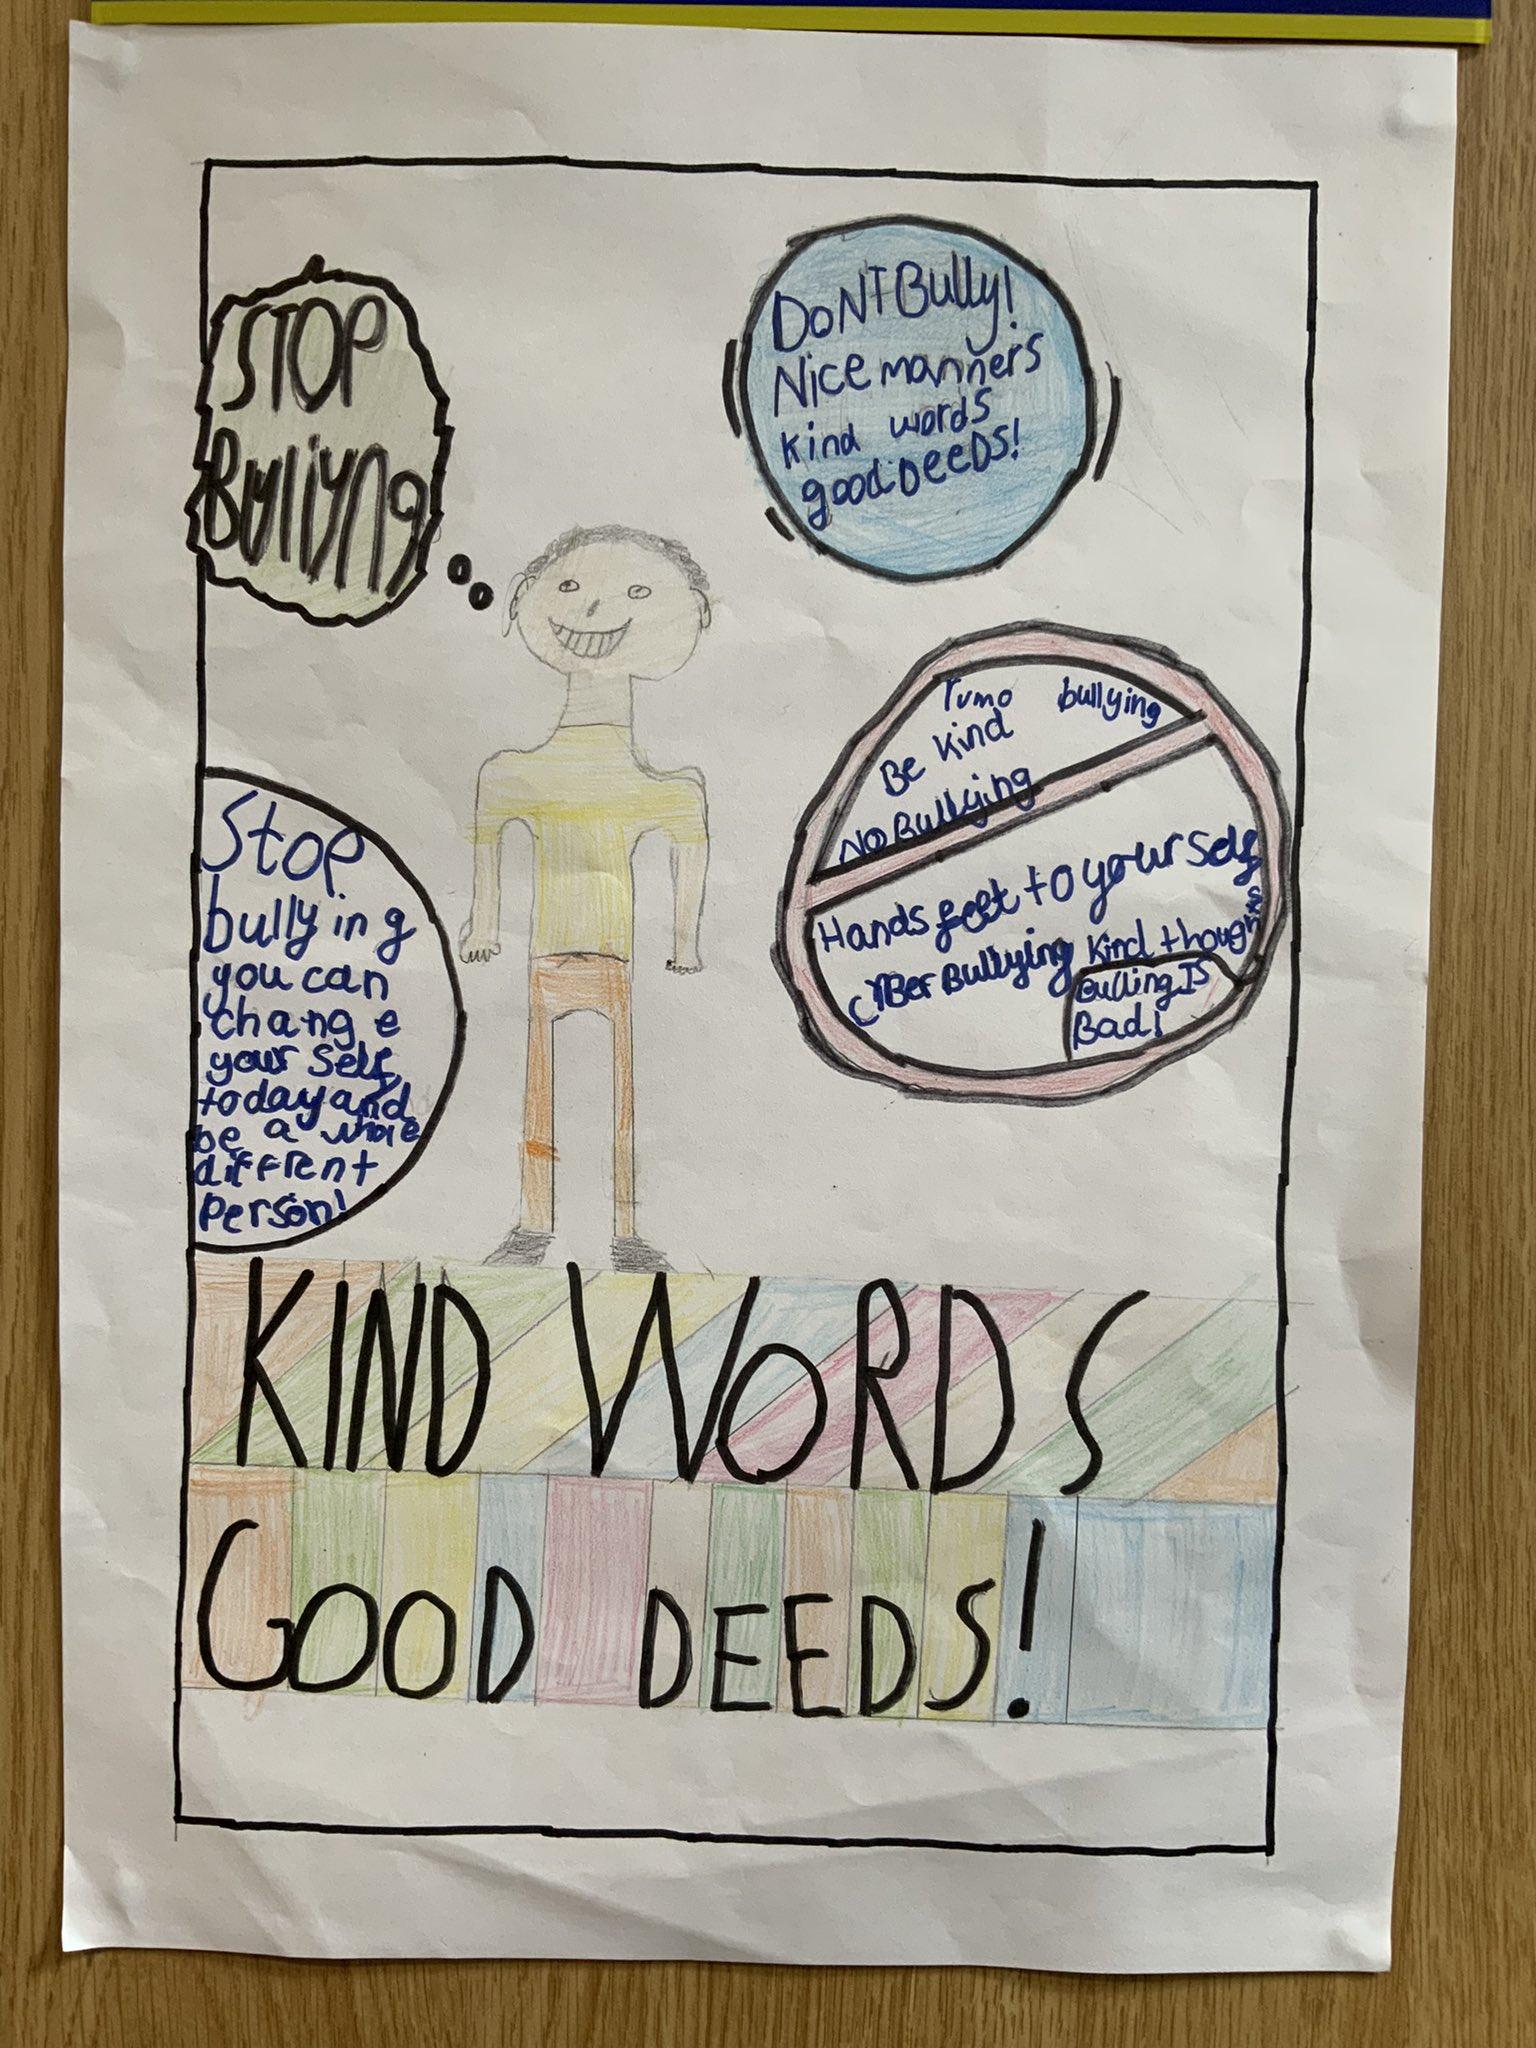 STOP
Bulliyng
DoNT Bully!
Nice manners
kind words
good DeeDS!
rumo bullying
Be kind
No Bullying
Hands feet to your self
cyBer Bullying kind thoughts
Bulling IS
Bad!
Stop
bullying
you can
change
your self
today and
be a whole
diffrent
person!
KIND WORDS
GOOD DEEDS!